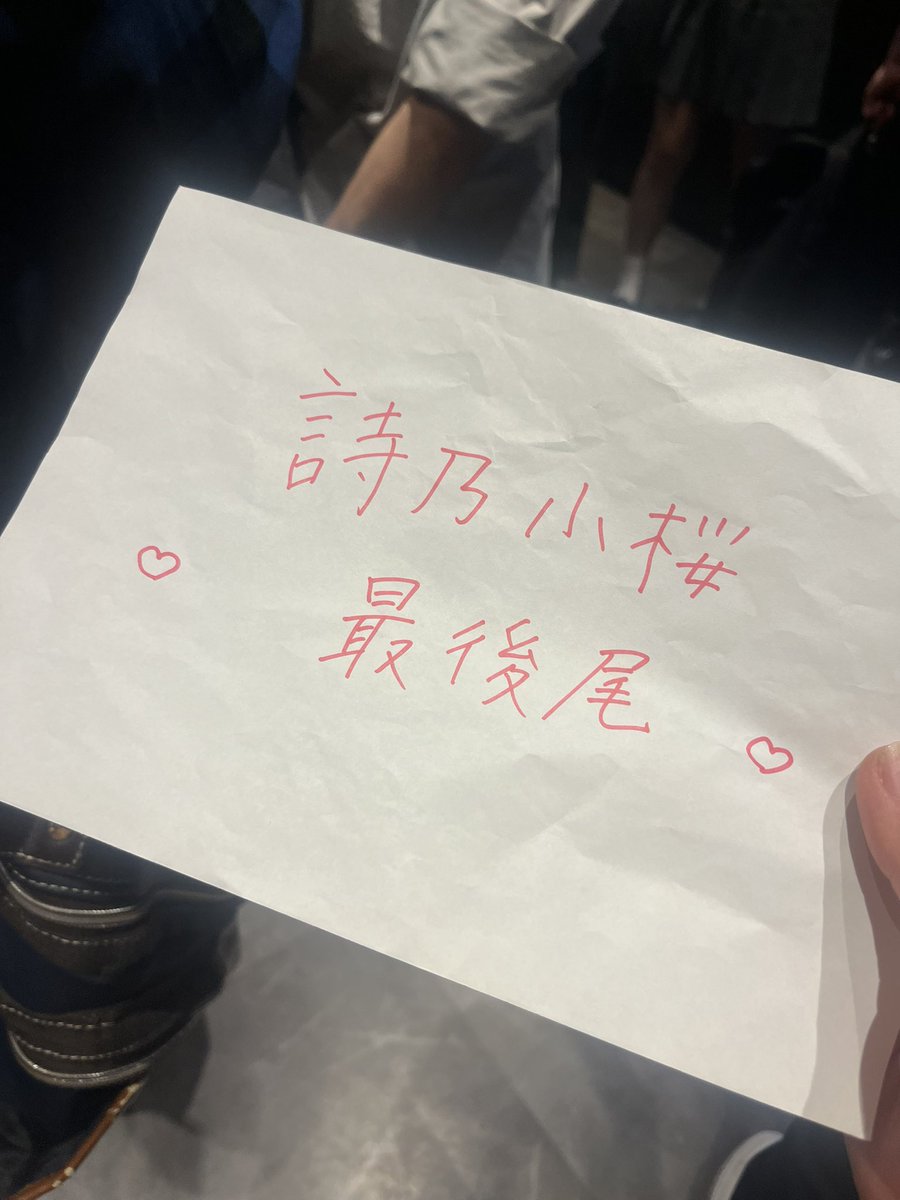 詩乃小桜
♡ 最後尾 ♡